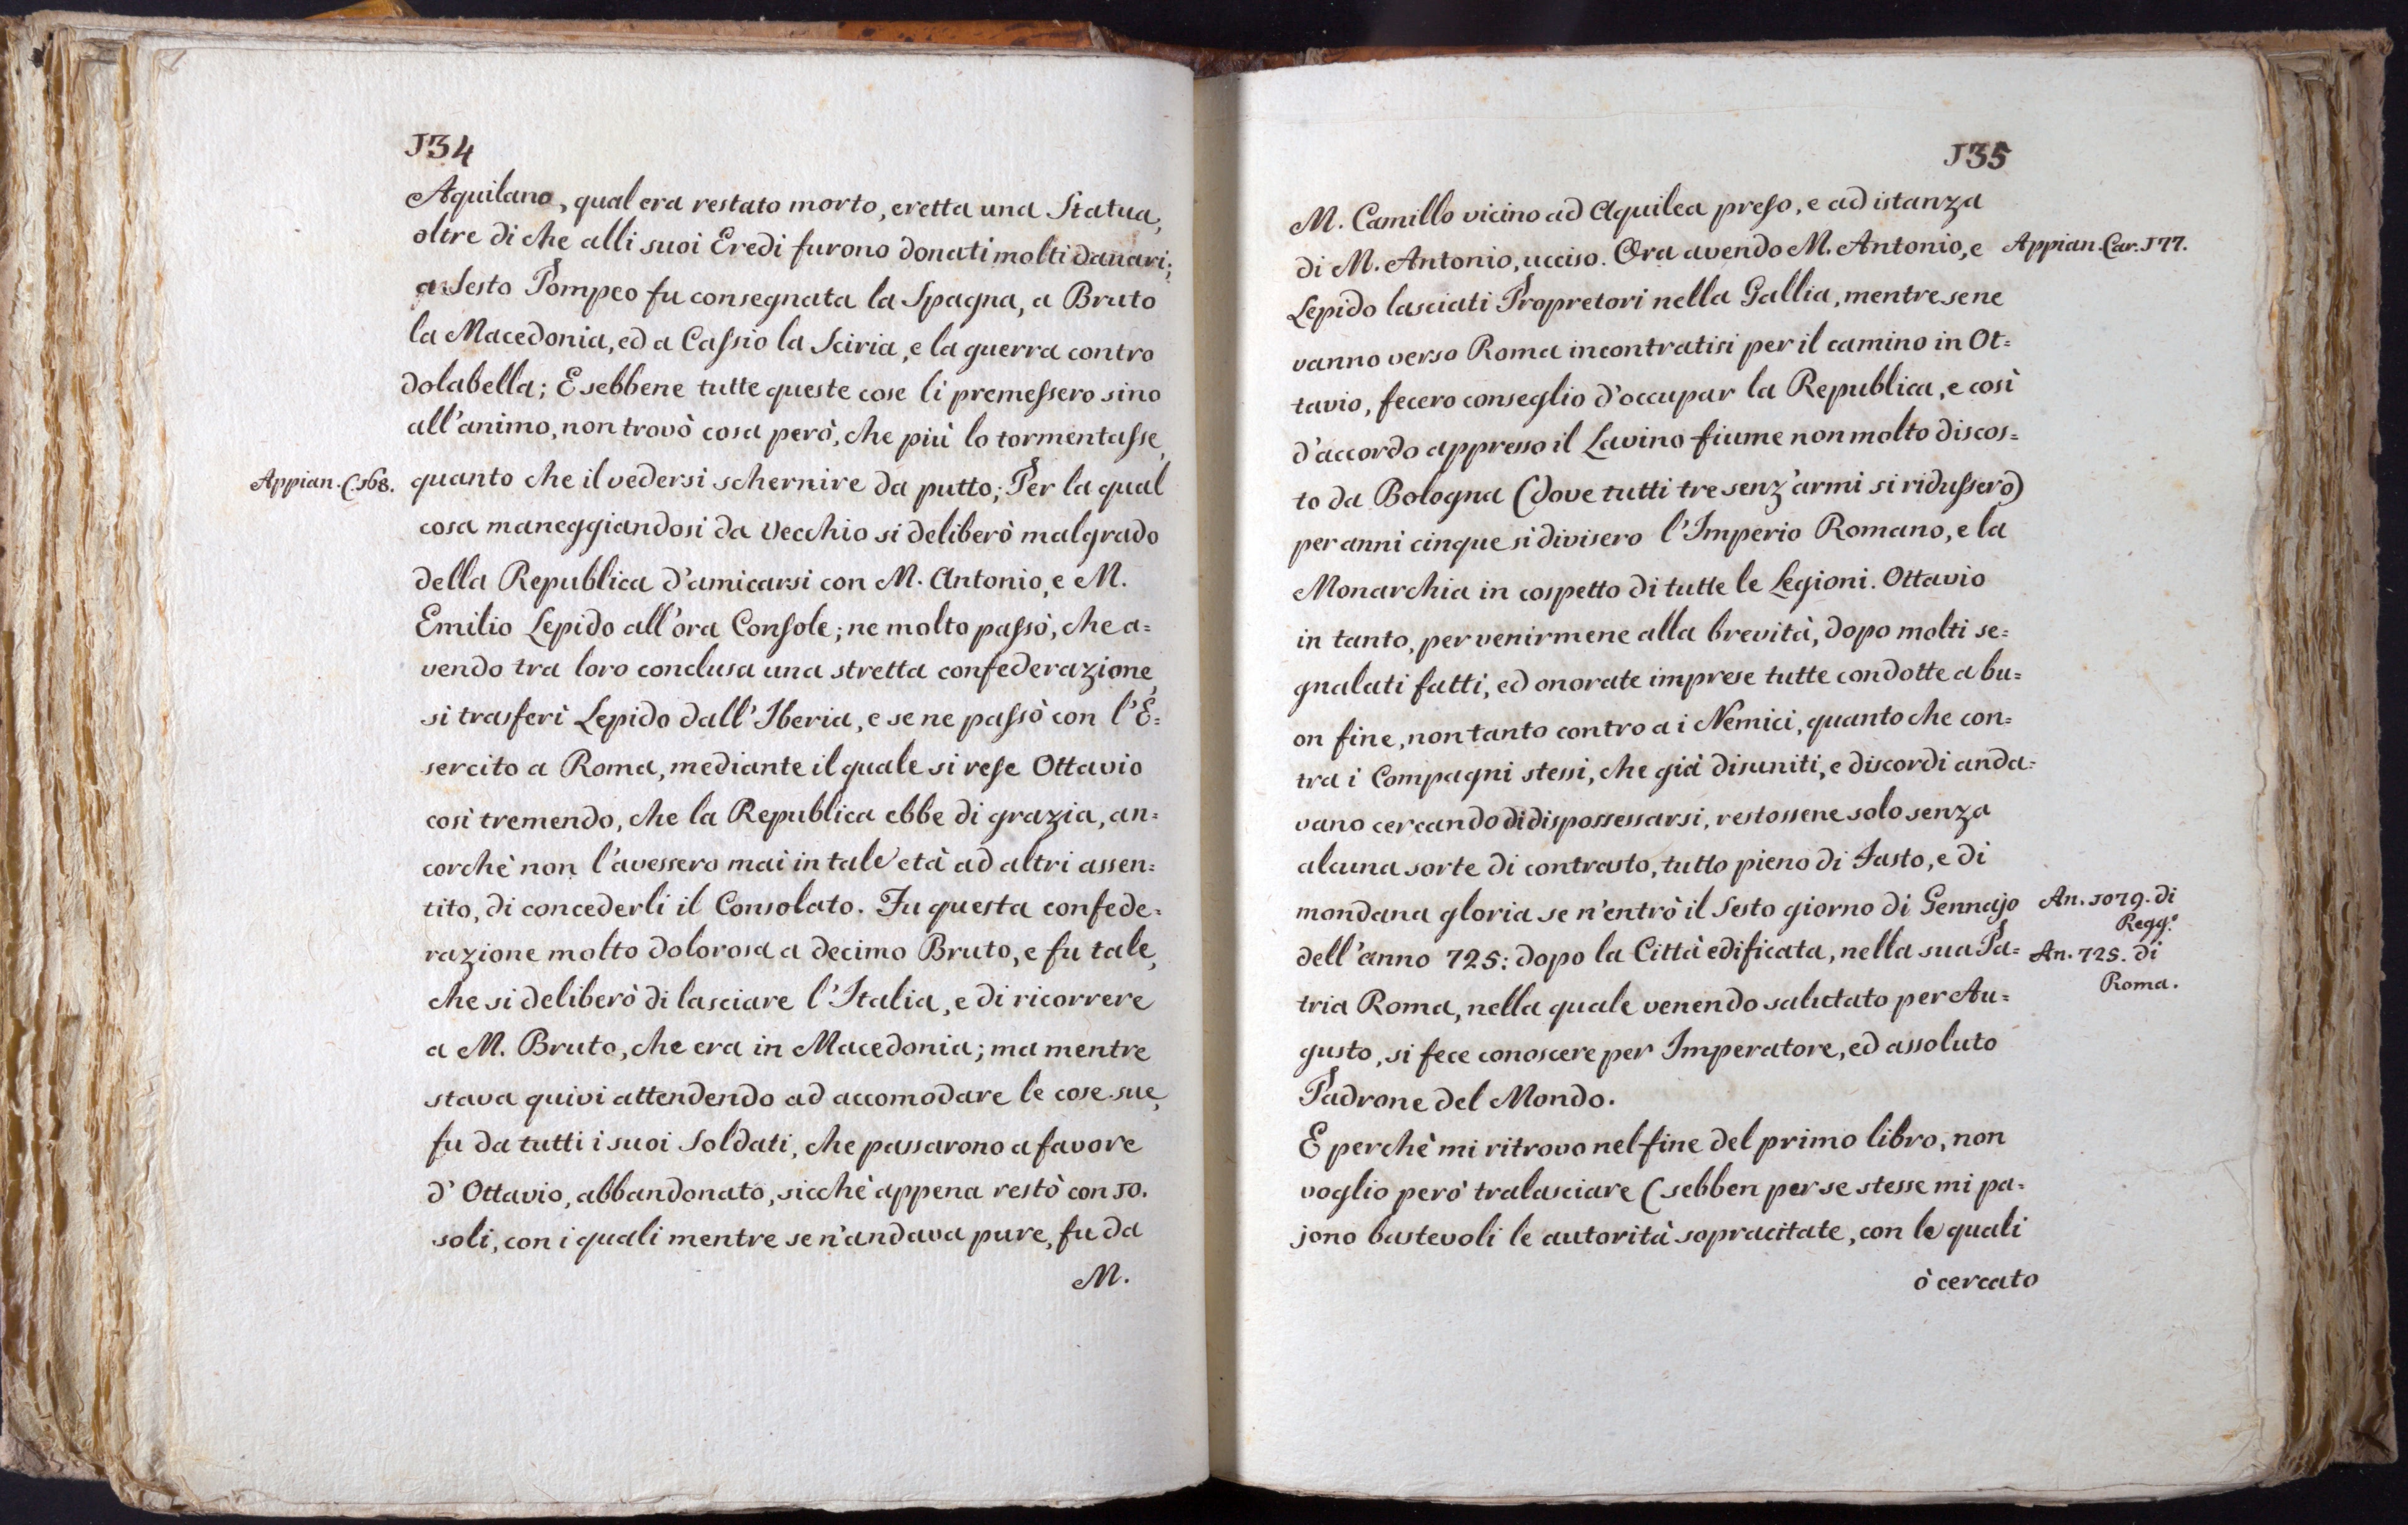 134
Aquilano, qual era restato morto, eretta una Statua,
oltre di che alli suoi Eredi furono donati molti danari;
a Sesto Pompeo fu consegnata la Spagna, a Bruto
la Macedonia, ed a Cassio la Sciria, e la guerra contro
dolabella; E sebbene tutte queste cose li premessero sino
all'animo, non trovò cosa però, che più lo tormentasse,
Appian. C. 168.
quanto che il vedersi schernire da putto; Per la qual
cosa maneggiandosi da Vecchio si deliberò malgrado
della Republica d'amicarsi con M. Antonio, e M.
Emilio Lepido all'ora Console; ne molto passò, che a=
vendo tra loro conclusa una stretta confederazione,
si trasferì Lepido dall'Iberia, e se ne passò con l'E=
sercito a Roma, mediante il quale si rese Ottavio
così tremendo, che la Republica ebbe di grazia, an=
corchè non l'avessero mai in tale età ad altri assen=
tito, di concederli il Consolato. Fu questa confede=
razione molto dolorosa a decimo Bruto, e fu tale,
che si deliberò di lasciare l'Italia, e di ricorrere
a M. Bruto, che era in Macedonia; ma mentre
stava quivi attendendo ad accomodare le cose sue,
fu da tutti i suoi Soldati, che passarono a favore
d'Ottavio, abbandonato, sicchè appena restò con 10.
soli, con i quali mentre se n'andava pure, fu da
M.
135
M. Camillo vicino ad Aquilea preso, e ad istanza
di M. Antonio, ucciso. Ora avendo M. Antonio, e
Appian. Car. 177.
Lepido lasciati Propretori nella Gallia, mentre se ne
vanno verso Roma incontratisi per il camino in Ot=
tavio, fecero conseglio d'occupar la Republica, e così
d'accordo appresso il Lavino fiume non molto discos=
to da Bologna (dove tutti tre senz'armi si ridussero)
per anni cinque si divisero l'Imperio Romano, e la
Monarchia in cospetto di tutte le Legioni. Ottavio
in tanto, per venirmene alla brevità, dopo molti se=
gnalati fatti, ed onorate imprese tutte condotte a bu=
on fine, non tanto contro a i Nemici, quanto che con=
tra i Compagni stessi, che già disuniti, e discordi anda=
vano cercando di dispossessarsi, restossene solo senza
alcuna sorte di contrasto, tutto pieno di Fasto, e di
mondana gloria se n'entrò il Sesto giorno di Gennajo
An. 1079. di
Regg.o
dell'anno 725: dopo la Città edificata, nella sua Pa=
An. 725. di
Roma.
tria Roma, nella quale venendo salutato per Au=
gusto, si fece conoscere per Imperatore, ed assoluto
Padrone del Mondo.
E perchè mi ritrovo nel fine del primo libro, non
voglio però tralasciare (sebben per se stesse mi pa=
jono bastevoli le autorità sopracitate, con le quali
ò cercato